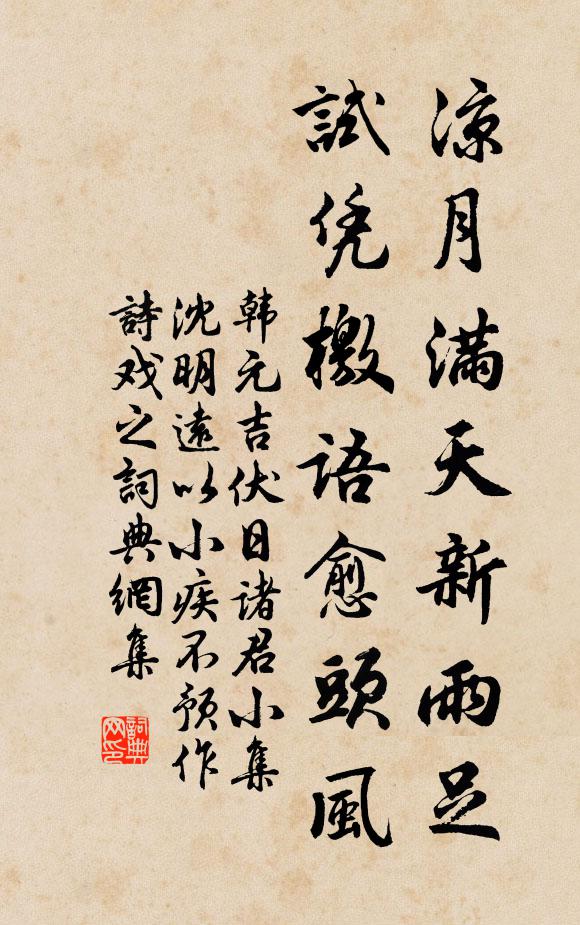 涼月滿天新雨足
試凭檄語愈頭風
韩元吉伏日诸君小集
沈明遠以小疾不预作
詩戏之詞典網集
詞典
网印